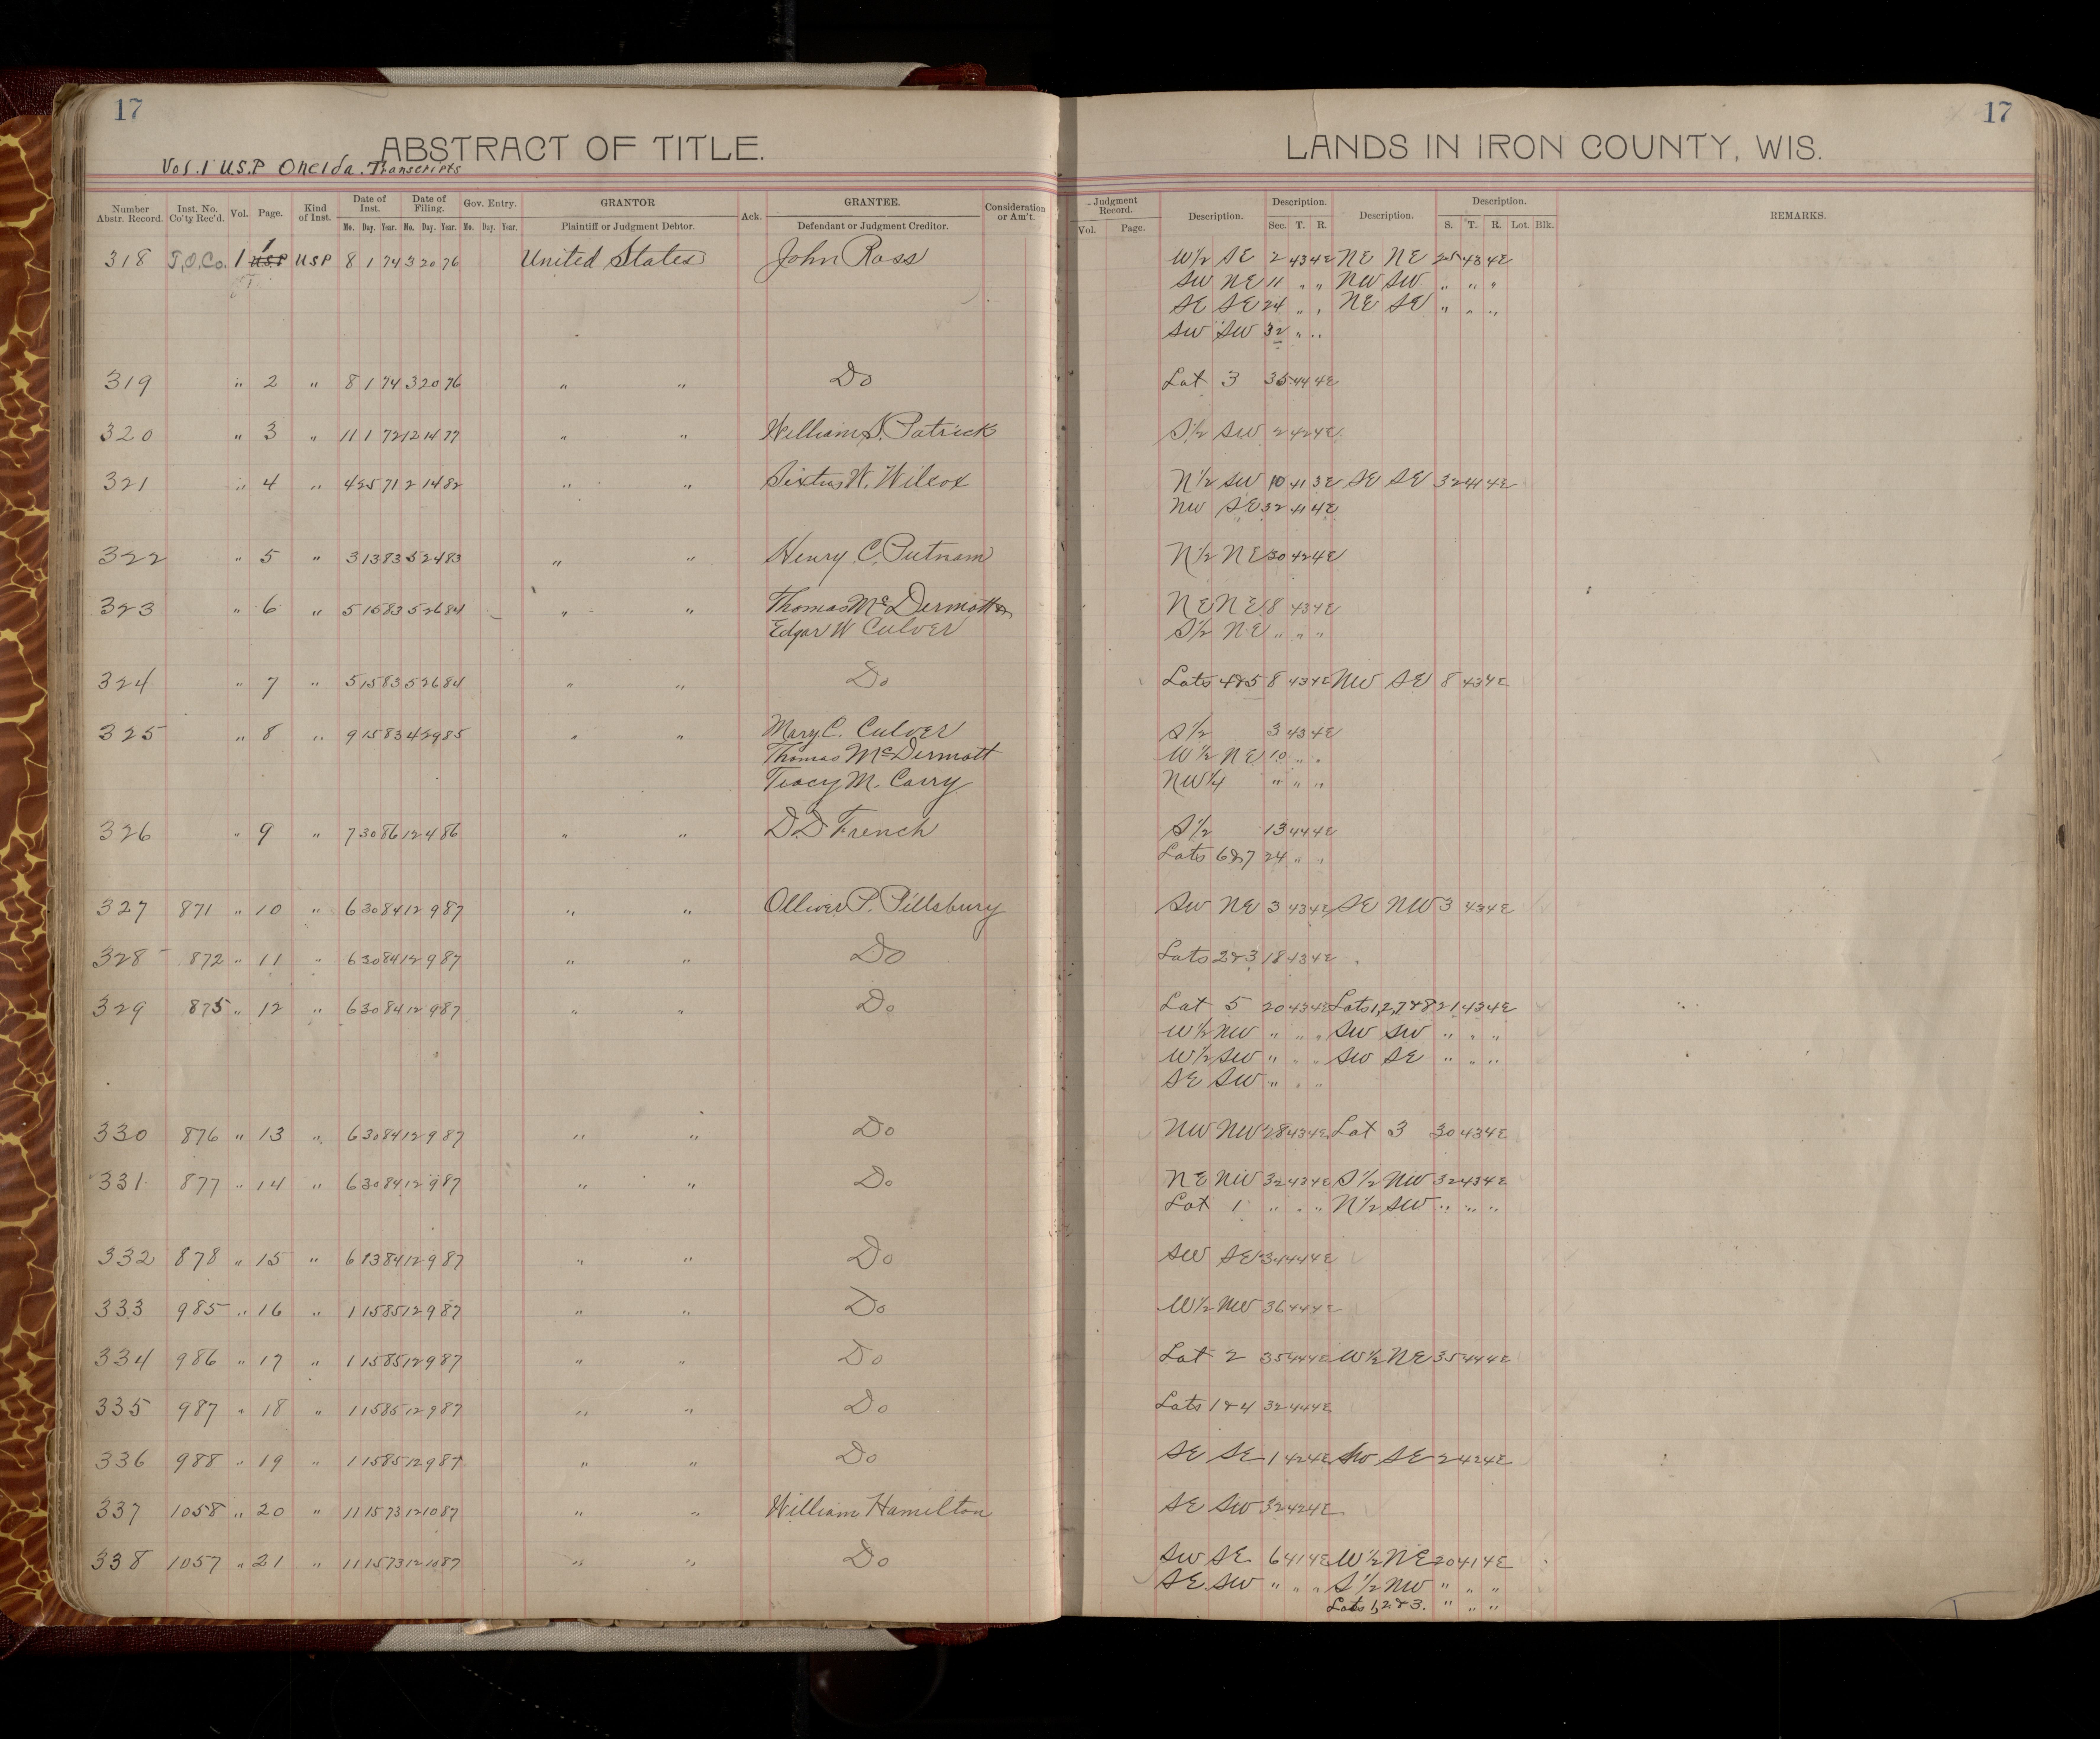 17
ABSTRACT OF TITLE.
Vol. 1 U.S.P Oneida. Transcripts
Number Abstr. Record. Inst. No. Co'ty Rec'd. Vol. Page. Kind of Inst. Date of Inst. Mo. Day. Year. Date of Filing. Mo. Day. Year. Gov. Entry. Mo. Day. Year. GRANTOR Plaintiff or Judgment Debtor. Ack. GRANTEE. Defendant or Judgment Creditor. Consideration or Am't.
17
LANDS IN IRON COUNTY, WIS.
Judgment Record. Vol. Page. Description. Description. Sec. T. R. Description. Description. S. T. R. Lot. Blk. REMARKS.
318 T.O.Co. 1 1 USP 8 1 74 3 20 76 United States John Ross W½ SE 2 43 4E NE NE 25 43 4E
SW NE 11 " " NW SW " " "
SE SE 24 " " NE SE " " "
SW SW 32 " "
319 " 2 " 8 1 74 3 20 76 " " Do Lot 3 35 44 4E
320 " 3 " 11 1 72 12 14 77 " " William S. Patrick S½ SW 2 42 4E
321 " 4 " 4 25 71 2 14 82 " " Sixtus W. Wilcox N½ SW 10 41 3E SE SE 32 41 4E
NW SE 32 41 4E
322 " 5 " 3 13 83 5 24 83 " " Henry C. Putnam N½ NE 30 42 4E
323 " 6 " 5 15 83 5 26 84 " " Thomas McDermott & NE NE 8 43 4E
Edgar W Culver S½ NE " " "
324 " 7 " 5 15 83 5 26 84 " " Do Lots 4&5 8 43 4E NW SE 8 43 4E
325 " 8 " 9 15 83 4 29 85 " " Mary C. Culver S½ 3 43 4E
Thomas McDermott W½ NE 10 " "
Tracy M. Carry NW¼ " " "
326 " 9 " 7 30 86 12 4 86 " " D.D French S½ 13 44 4E
Lots 6&7 24 " "
327 871 " 10 " 6 30 84 12 9 87 " " Olliver P. Pillsbury SW NE 3 43 4E SE NW 3 43 4E
328 872 " 11 " 6 30 84 12 9 87 " " Do Lots 2&3 18 43 4E
329 875 " 12 " 6 30 84 12 9 87 " " Do Lot 5 20 43 4E Lots 1,2,7&8 21 43 4E
W½ NW " " " SW SW " " "
W½ SW " " " SW SE " " "
SE SW " " "
330 876 " 13 " 6 30 84 12 9 87 " " Do NW NW 28 43 4E Lot 3 30 43 4E
331 877 " 14 " 6 30 84 12 9 87 " " Do NE NW 32 43 4E S½ NW 32 43 4E
Lot 1 " " " N½ SW " " "
332 878 " 15 " 6 13 84 12 9 87 " " Do SW SE 34 44 4E
333 985 " 16 " 1 15 85 12 9 87 " " Do W½ NW 36 44 4E
334 986 " 17 " 1 15 85 12 9 87 " " Do Lot 2 35 44 4E W½ NE 35 44 4E
335 987 " 18 " 1 15 85 12 9 87 " " Do Lots 1&4 32 44 4E
336 988 " 19 " 1 15 85 12 9 87 " " Do SE SE 1 42 4E SW SE 2 42 4E
337 1058 " 20 " 11 15 73 12 10 87 " " William Hamilton SE SW 32 42 4E
338 1057 " 21 " 11 15 73 12 10 87 " " Do SW SE 6 41 4E W½ NE 20 41 4E
SE SW " " " S½ NW " " "
Lots 1,2&3. " " "